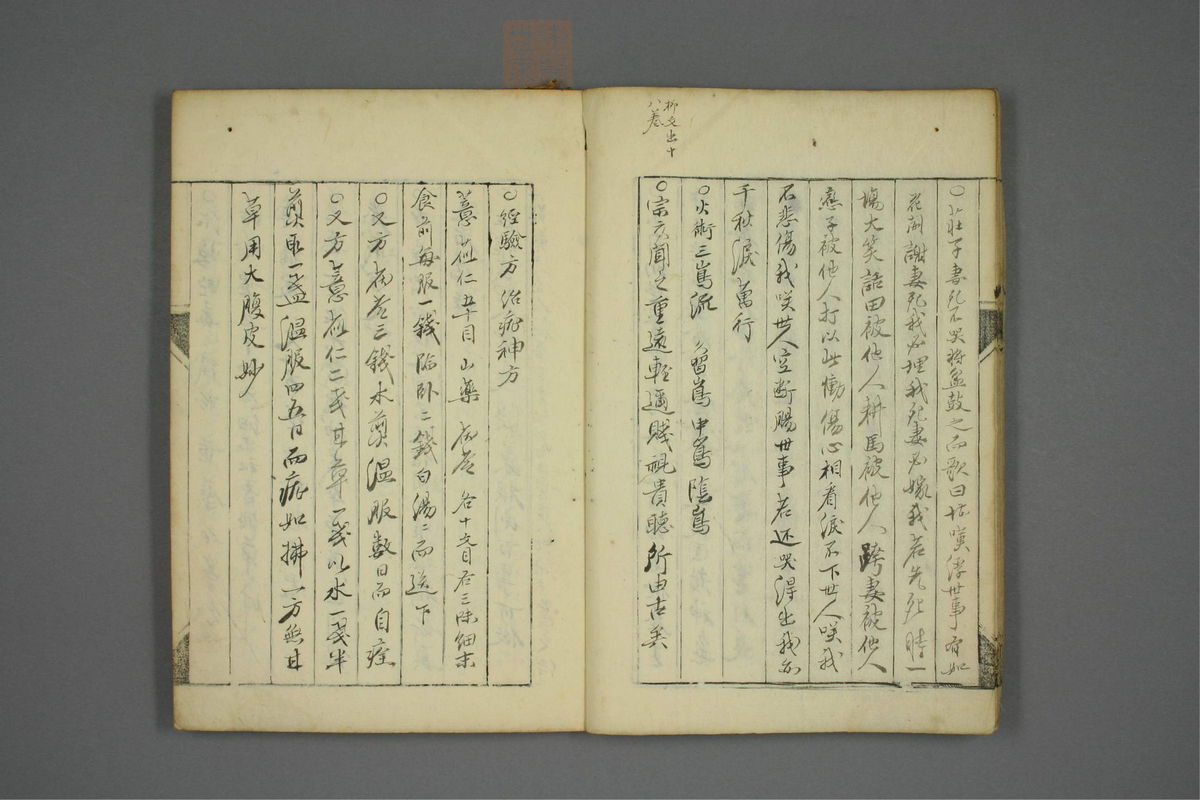 柳文出十
八巻
○莊子妻死不哭将盆鼓之而歌曰堪嘆浮世事有如
花開謝妻死我必埋我死妻必嫁我若先死時一
場大笑話田被他人耕馬被他人跨妻被他人
恋子被他人打以此慟傷心相看淚不下世人咲我
不悲傷我咲世人空断腸世事若還哭得出我亦
千秋淚萬行
○火術三嶌流 習嶌中嶌隂嶌
○宗六聞之重遠輕邇賤視貴聴所由古矣
○經驗方 治病神方
薏苡仁五十目 山藥 各十文目右三味細末
食前每服一錢臨卧二錢白湯二而送下
○又方 三錢水煎温服数日而自痊
○又方 薏苡仁二戔甘草一戔以水一戔半
煎取一盞温服四五日而病如拂一方無甘
草用大腹皮妙